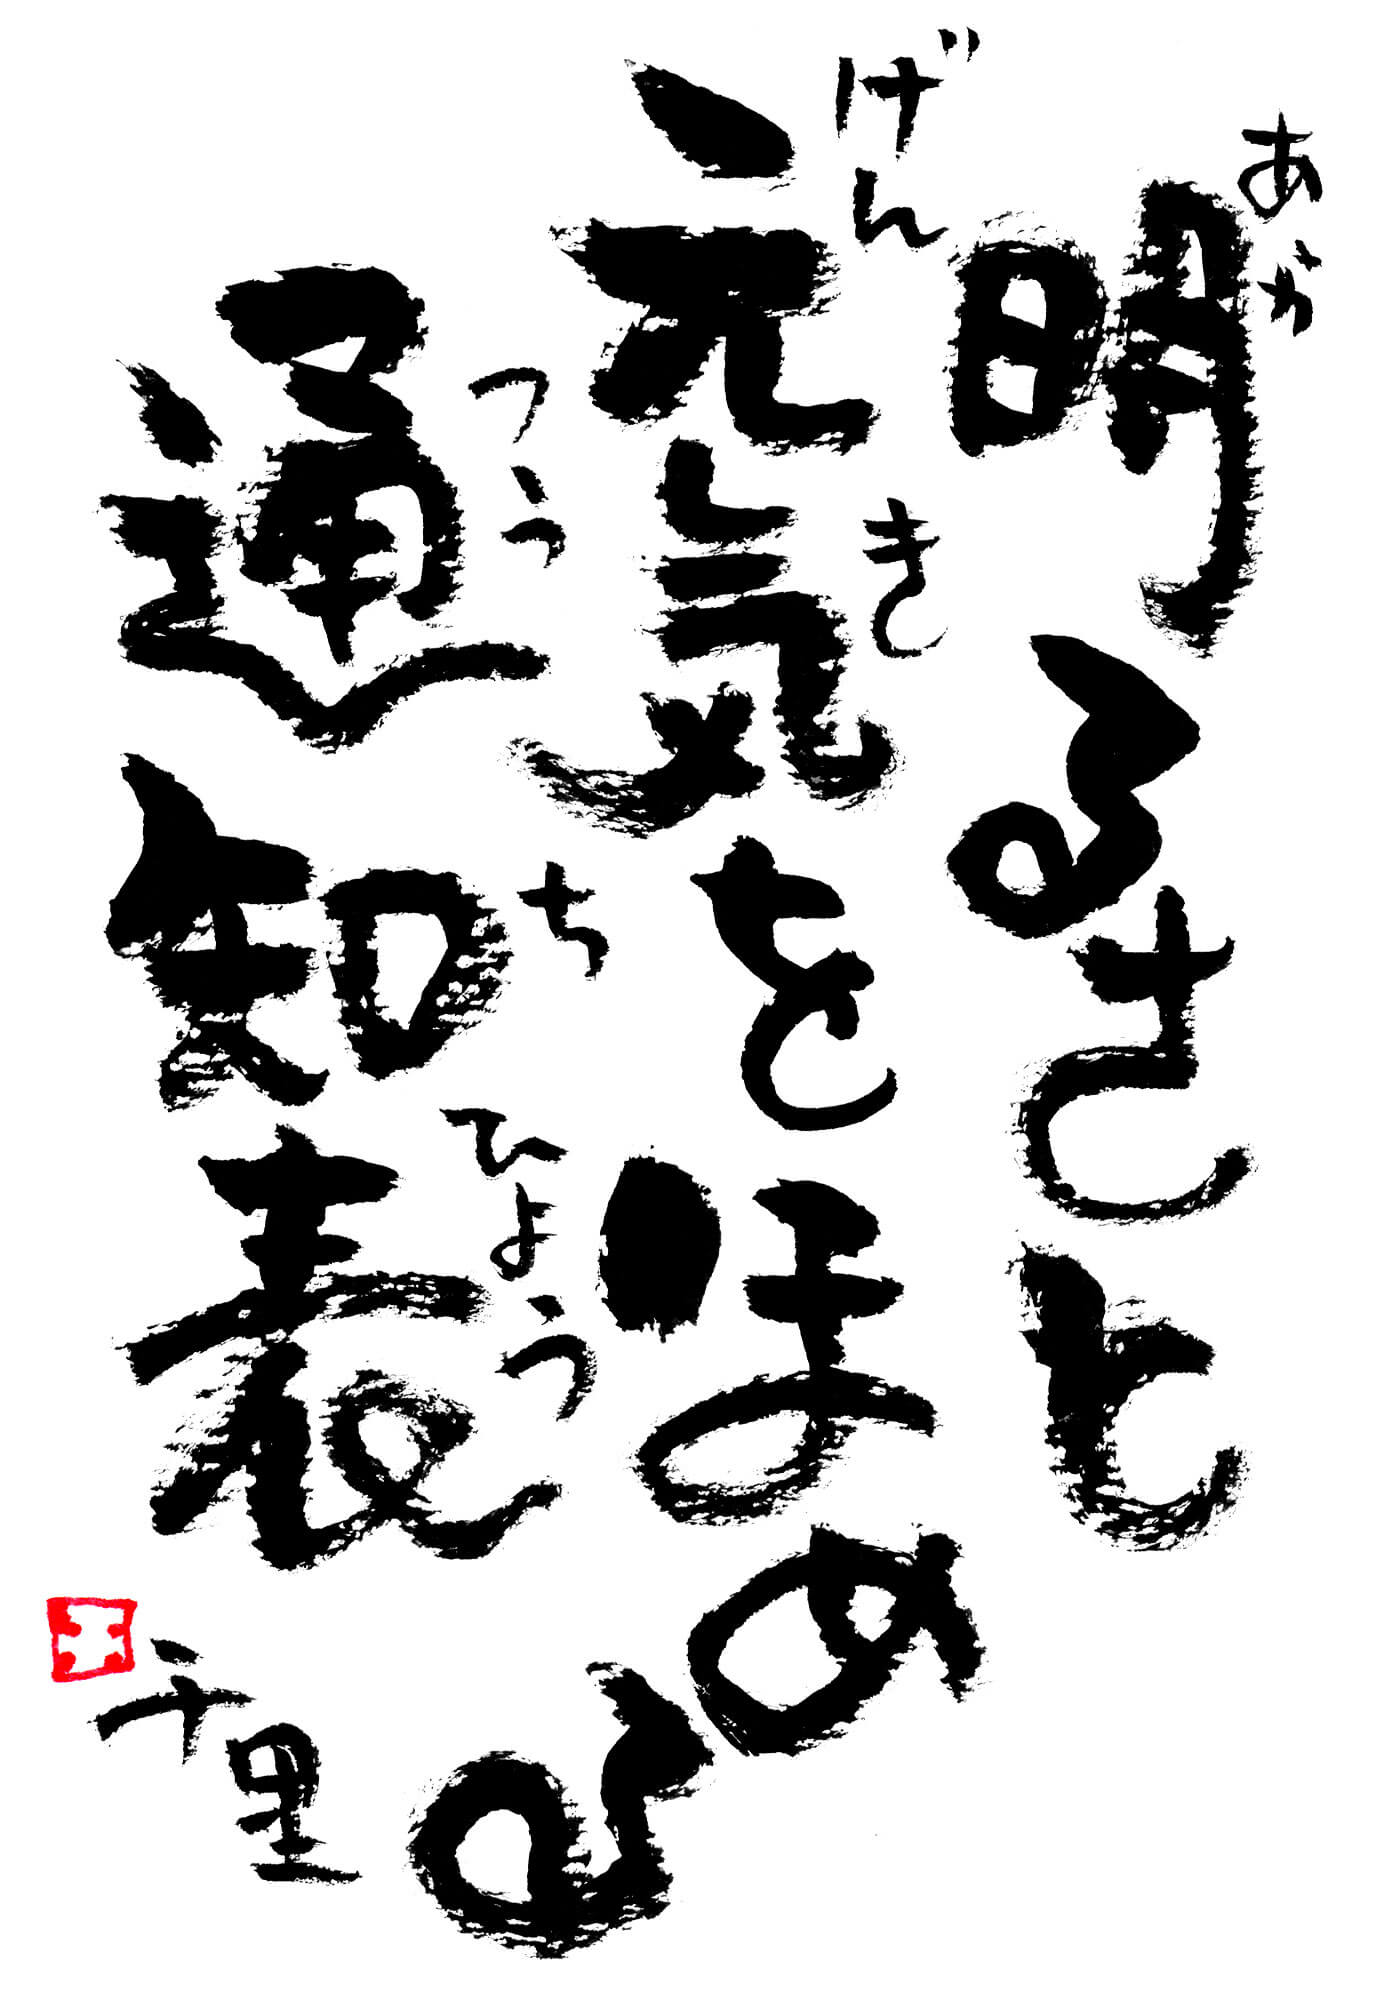 明るさと
あか
元気をほめる
げんき
通知表
つうちひょう
千里